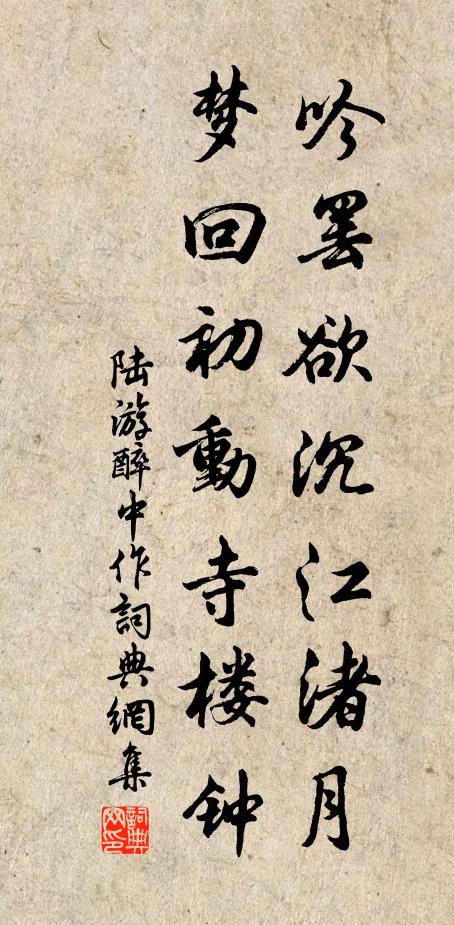 吟罢欲沉江渚月
梦回初動寺楼钟
陆游醉中作詞典網集
詞典网印